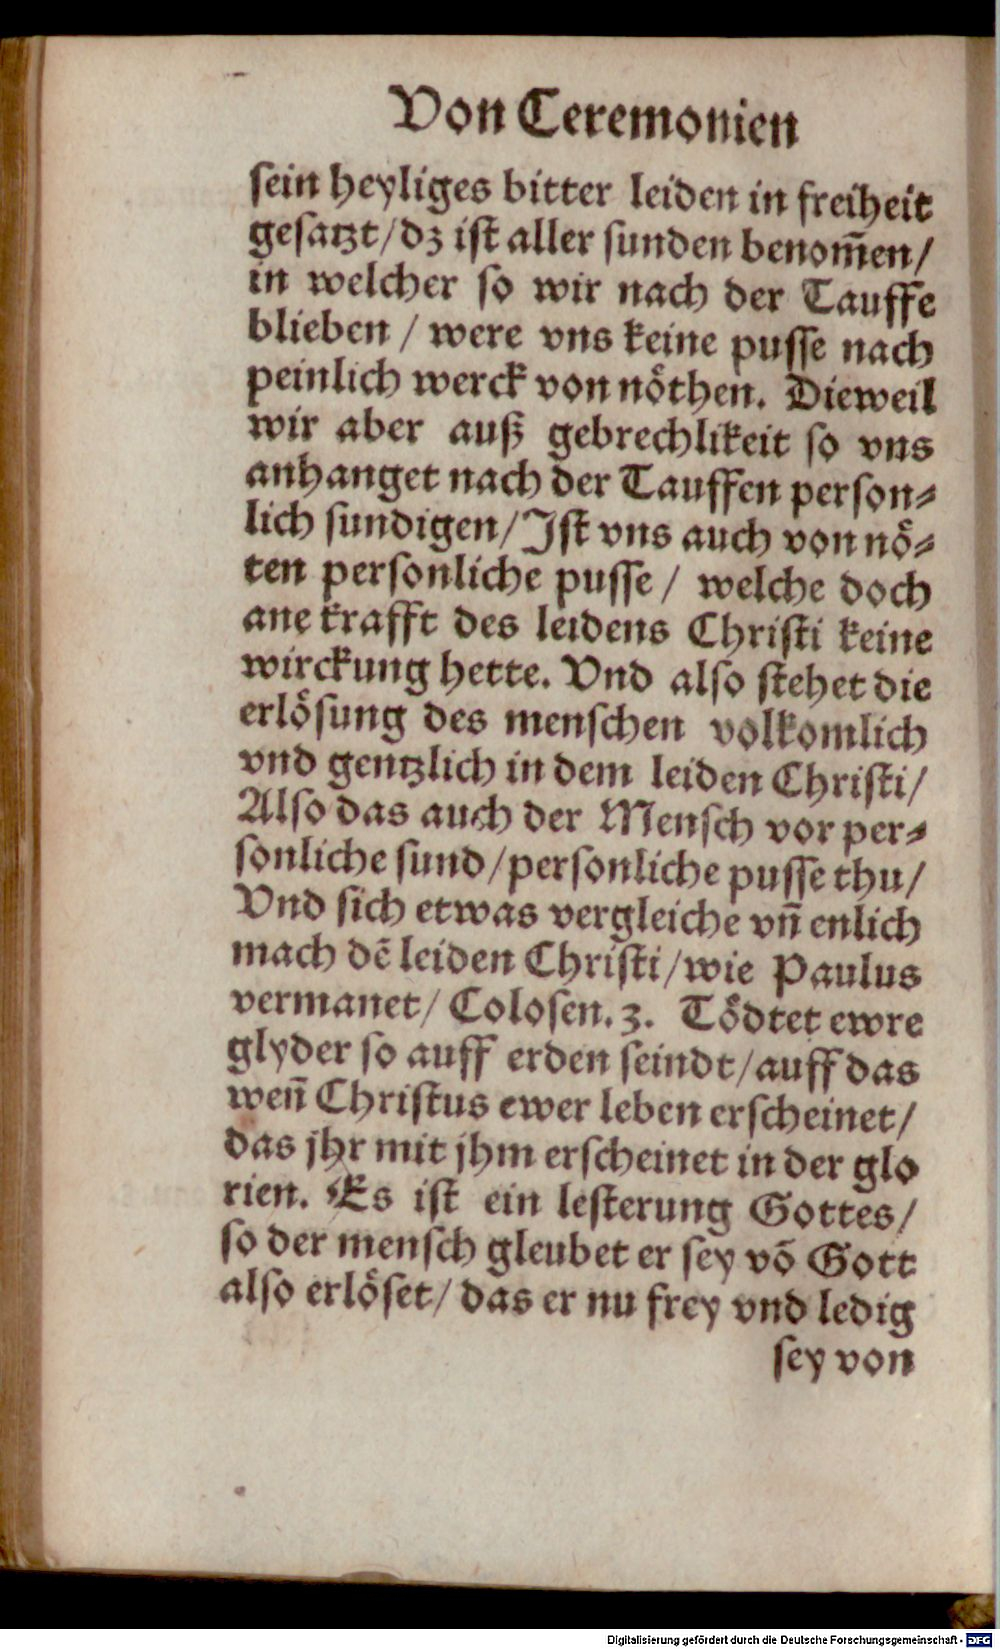 Von Ceremonien
sein heyliges bitter leiden in freiheit
gesatzt/dz ist aller sunden benom̄en/
in welcher so wir nach der Tauffe
blieben / were vns keine pusse nach
peinlich werck von nöthen. Dieweil
wir aber auß gebrechlikeit so vns
anhanget nach der Tauffen person⸗
lich sundigen/Ist vns auch von nö⸗
ten personliche pusse / welche doch
ane krafft des leidens Christi keine
wirckung hette. Vnd also stehet die
erlösung des menschen volkomlich
vnd gentzlich in dem leiden Christi/
Also das auch der Mensch vor per⸗
sonliche sund/personliche pusse thu/
Vnd sich etwas vergleiche vn̄ enlich
mach dē leiden Christi/wie Paulus
vermanet/ Colosen. 3. Tödtet ewre
glyder so auff erden seindt/auff das
wen̄ Christus ewer leben erscheinet/
das jhr mit jhm erscheinet in der glo
rien. Es ist ein lesterung Gottes/
so der mensch gleubet er sey vō Gott
also erlöset/ das er nu frey vnd ledig
sey von
Digitalisierung gefördert durch die Deutsche Forschungsgemeinschaft - DFG